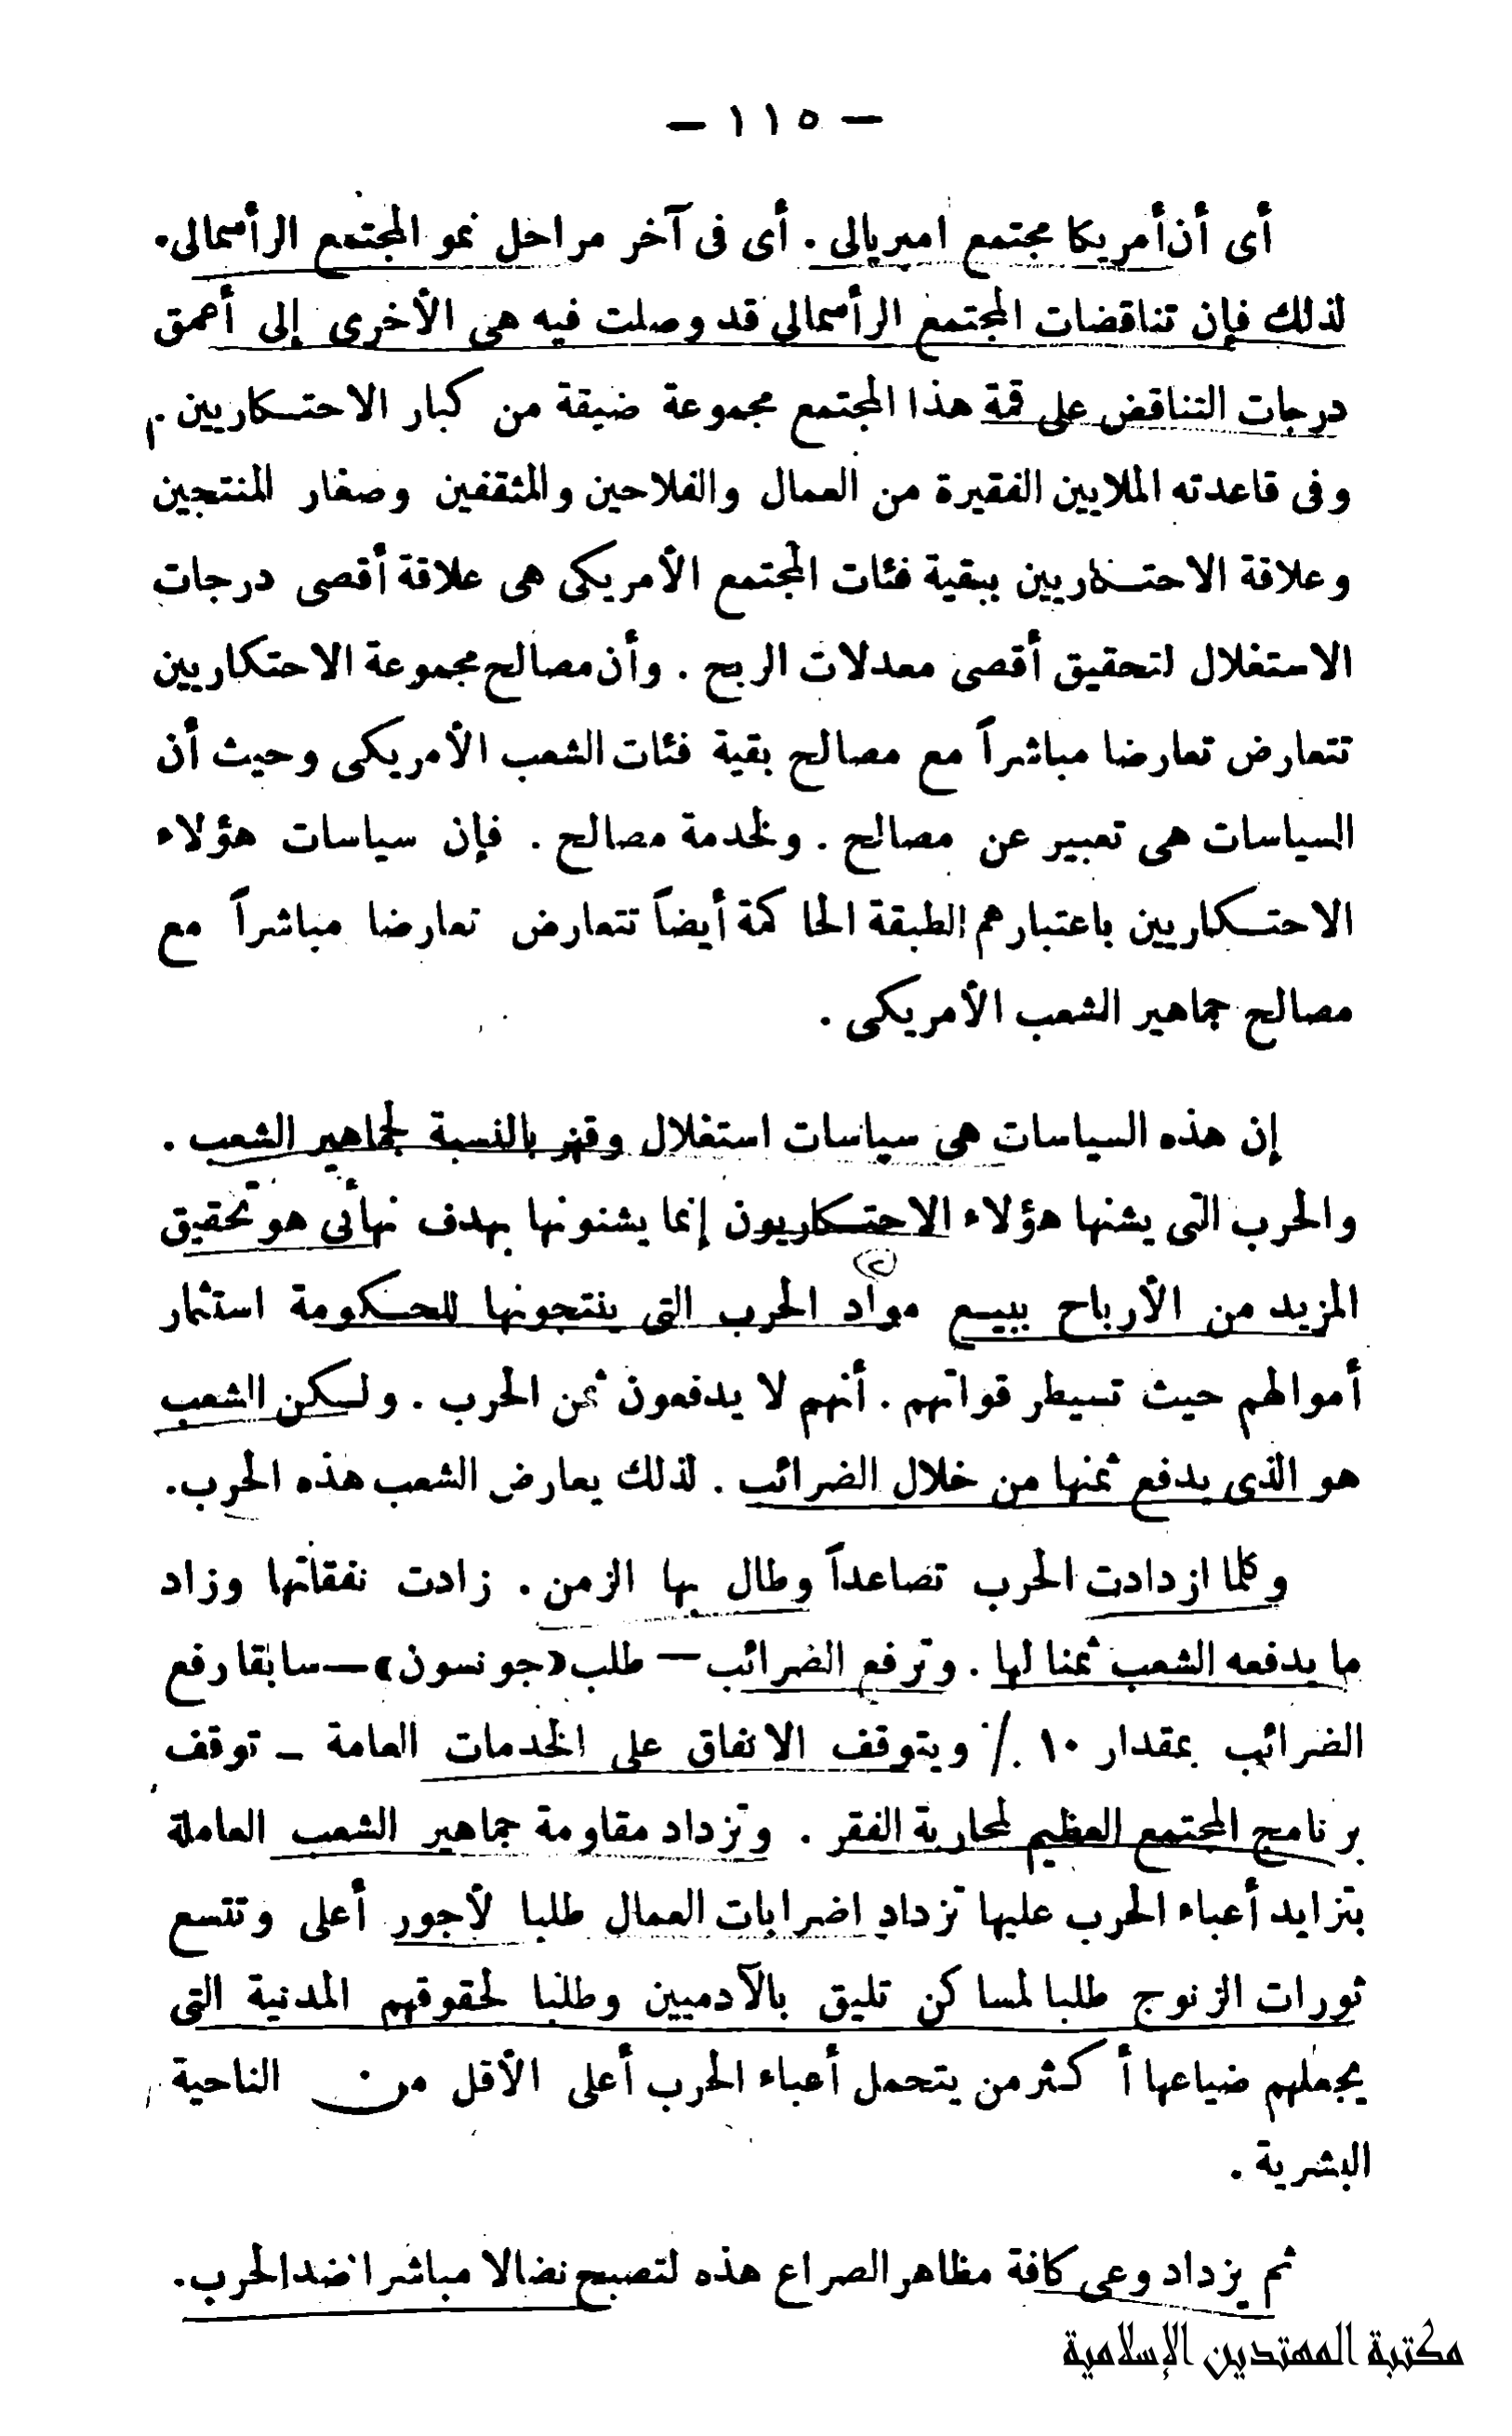 — ١١٥ —
أى أن أمريكا مجتمع امبريالى . أى فى آخر مراحل نمو المجتمع الرأسمالى.
لذلك فإن تناقضات المجتمع الرأسمالى قد وصلت فيه هى الأخرى إلى أعمق
درجات التناقض على قمة هذا المجتمع مجموعة ضيقة من كبار الاحتكاريين .
وفى قاعدته الملايين الفقيرة من العمال والفلاحين والمثقفين وصغار المنتجين
وعلاقة الاحتكاريين ببقية فئات المجتمع الأمريكى هى علاقة أقصى درجات
الاستغلال لتحقيق أقصى معدلات الربح . وأن مصالح مجموعة الاحتكاريين
تتعارض تعارضا مباشراً مع مصالح بقية فئات الشعب الأمريكى وحيث أن
السياسات هى تعبير عن مصالح . ولخدمة مصالح . فإن سياسات هؤلاء
الاحتكاريين باعتبارهم الطبقة الحاكمة أيضاً تتعارض تعارضا مباشراً مع
مصالح جماهير الشعب الأمريكى .
إن هذه السياسات هى سياسات استغلال وقهر بالنسبة لجماهير الشعب .
والحرب التى يشنها هؤلاء الاحتكاريون إنما يشنونها بهدف نهائى هو تحقيق
المزيد من الأرباح ببيع مواد الحرب التى ينتجونها للحكومة استثمار
أموالهم حيث تسيطر قواتهم . أنهم لا يدفعون ثمن الحرب . ولكن الشعب
هو الذى يدفع ثمنها من خلال الضرائب . لذلك يعارض الشعب هذه الحرب.
وكلما ازدادت الحرب تصاعداً وطال بها الزمن . زادت نفقاتها وزاد
ما يدفعه الشعب ثمنا لها . وترفع الضرائب — طلب «جونسون» — سابقا رفع
الضرائب بمقدار ١٠ ٪ ويتوقف الانفاق على الخدمات العامة – توقف
برنامج المجتمع العظيم لمحاربة الفقر . وتزداد مقاومة جماهير الشعب العاملة
بتزايد أعباء الحرب عليها تزداد اضرابات العمال طلبا لأجور أعلى وتتسع
ثورات الزنوج طلبا لمساكن تليق بالآدميين وطلبا لحقوقهم المدنية التى
يجعلهم ضياعها أكثر من يتحمل أعباء الحرب أعلى الأقل من الناحية
البشرية .
ثم يزداد وعى كافة مظاهر الصراع هذه لتصبح نضالا مباشرا ضد الحرب.
مكتبة المهتدين الإسلامية